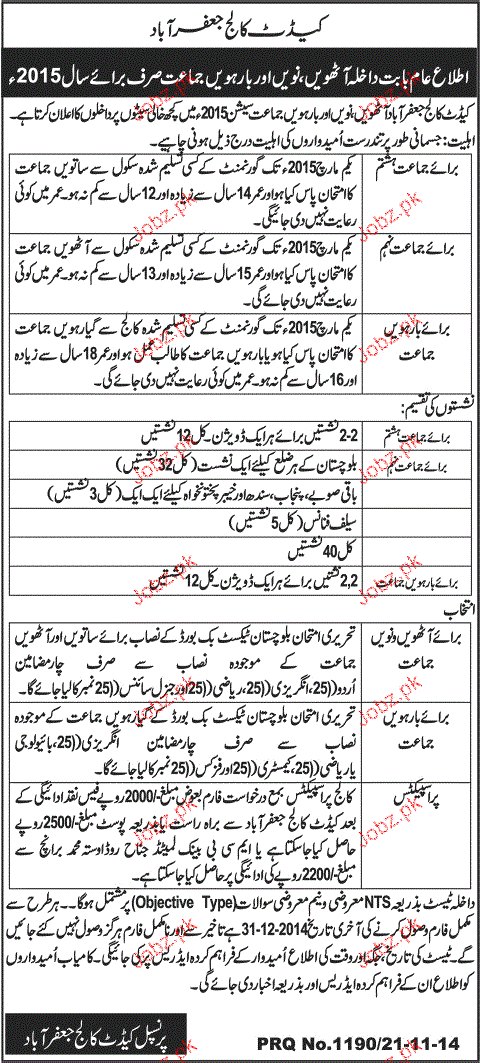 کیڈٹ کالج جعفر آباد
اطلاع عام بابت داخلہ آٹھویں، نویں اور بارہویں جماعت صرف برائے سال 2015ء
کیڈٹ کالج جعفر آباد آٹھویں، نویں اور بارہویں جماعت سیشن 2015ء میں کچھ خالی سیٹوں پر داخلوں کا اعلان کرتا ہے۔
اہلیت: جسمانی طور پر تندرست اُمیدواروں کی اہلیت درج ذیل ہونی چاہیے۔
برائے جماعت ہشتم
یکم مارچ 2015ء تک گورنمنٹ کے کسی تسلیم شدہ سکول سے ساتویں جماعت
کا امتحان پاس کیا ہو اور عمر 14 سال سے زیادہ اور 12 سال سے کم نہ ہو۔ عمر میں کوئی
رعایت نہیں دی جائیگی۔
برائے جماعت نہم
یکم مارچ 2015ء تک گورنمنٹ کے کسی تسلیم شدہ سکول سے آٹھویں جماعت
کا امتحان پاس کیا ہو اور عمر 15 سال سے زیادہ اور 13 سال سے کم نہ ہو۔ عمر میں کوئی
رعایت نہیں دی جائے گی۔
برائے بارہویں
جماعت
یکم مارچ 2015ء تک گورنمنٹ کے کسی تسلیم شدہ کالج سے گیارہویں جماعت
کا امتحان پاس کیا ہو یا بارہویں جماعت کا طالب علم ہو اور عمر 18 سال سے زیادہ
اور 16 سال سے کم نہ ہو۔ عمر میں کوئی رعایت نہیں دی جائے گی۔
نشستوں کی تقسیم:
برائے جماعت ہشتم
2-2 نشستیں برائے ہر ایک ڈویژن۔ کل 12 نشستیں
برائے جماعت نہم
بلوچستان کے ہر ضلع کیلئے ایک نشست (کل 32 نشستیں)
باقی صوبے، پنجاب، سندھ اور خیبر پختونخواہ کیلئے ایک ایک (کل 3 نشستیں)
سیلف فنانس (کل 5 نشستیں)
کل 40 نشستیں
برائے بارہویں جماعت
2,2 نشتیں برائے ہر ایک ڈویژن۔ کل 12 نشستیں
انتخاب
برائے آٹھویں و نویں
جماعت
تحریری امتحان بلوچستان ٹیکسٹ بک بورڈ کے نصاب برائے ساتویں اور آٹھویں
جماعت کے موجودہ نصاب سے صرف چار مضامین
اُردو ((25، انگریزی ((25، ریاضی ((25 اور جنرل سائنس ((25 نمبر کا لیا جائے گا۔
برائے بارہویں
جماعت
تحریری امتحان بلوچستان ٹیکسٹ بک بورڈ کے گیارہویں جماعت کے موجودہ
نصاب سے صرف چار مضامین انگریزی ((25، بائیولوجی
یا ریاضی ((25، کیمسٹری ((25 اور فزکس ((25 نمبر کا لیا جائے گا۔
پراسپیکٹس
کالج پراسپیکٹس بمع درخواست فارم بعوض مبلغ -/2000 روپے فیس نقد ادائیگی کے
بعد کیڈٹ کالج جعفر آباد سے براہ راست یا بذریعہ پوسٹ مبلغ -/2500 روپے
حاصل کیا جا سکتا ہے یا ایم سی بی بینک لمیٹڈ جناح روڈ اوستہ محمد برانچ سے
مبلغ -/2200 روپے کی ادائیگی پر حاصل کیا جا سکتا ہے۔
داخلہ ٹیسٹ بذریعہ NTS معروضی و نیم معروضی سوالات (Objective Type) پر مشتمل ہوگا۔۔ ہر طرح سے
مکمل فارم وصول کرنے کی آخری تاریخ 2014-12-31 ہے تاخیر سے اور نامکمل فارم ہرگز وصول نہیں کئے جائیں
گے۔ ٹیسٹ کی تاریخ، جگہ اور وقت کی اطلاع اُمیدوار کے فراہم کردہ ایڈریس پر کی جائیگی۔ کامیاب اُمیدواروں
کو اطلاع ان کے فراہم کردہ ایڈریس اور بذریعہ اخبار دی جائے گی۔
پرنسپل کیڈٹ کالج جعفر آباد
PRQ No.1190/21-11-14
Jobz.pk